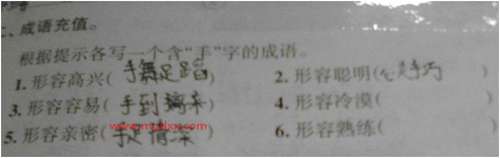 二、成语充值。
根据提示各写一个含“手”字的成语。
1.形容高兴(手舞足蹈) 2.形容聪明(心灵手巧)
3.形容容易(手到擒来) 4.形容冷漠( )
5.形容亲密(手足情深) 6.形容熟练( )